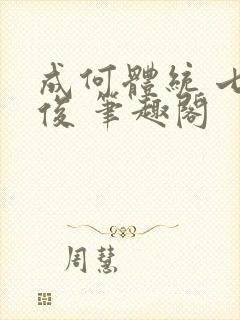 成何體統 七
俊 筆趣閣
周慧